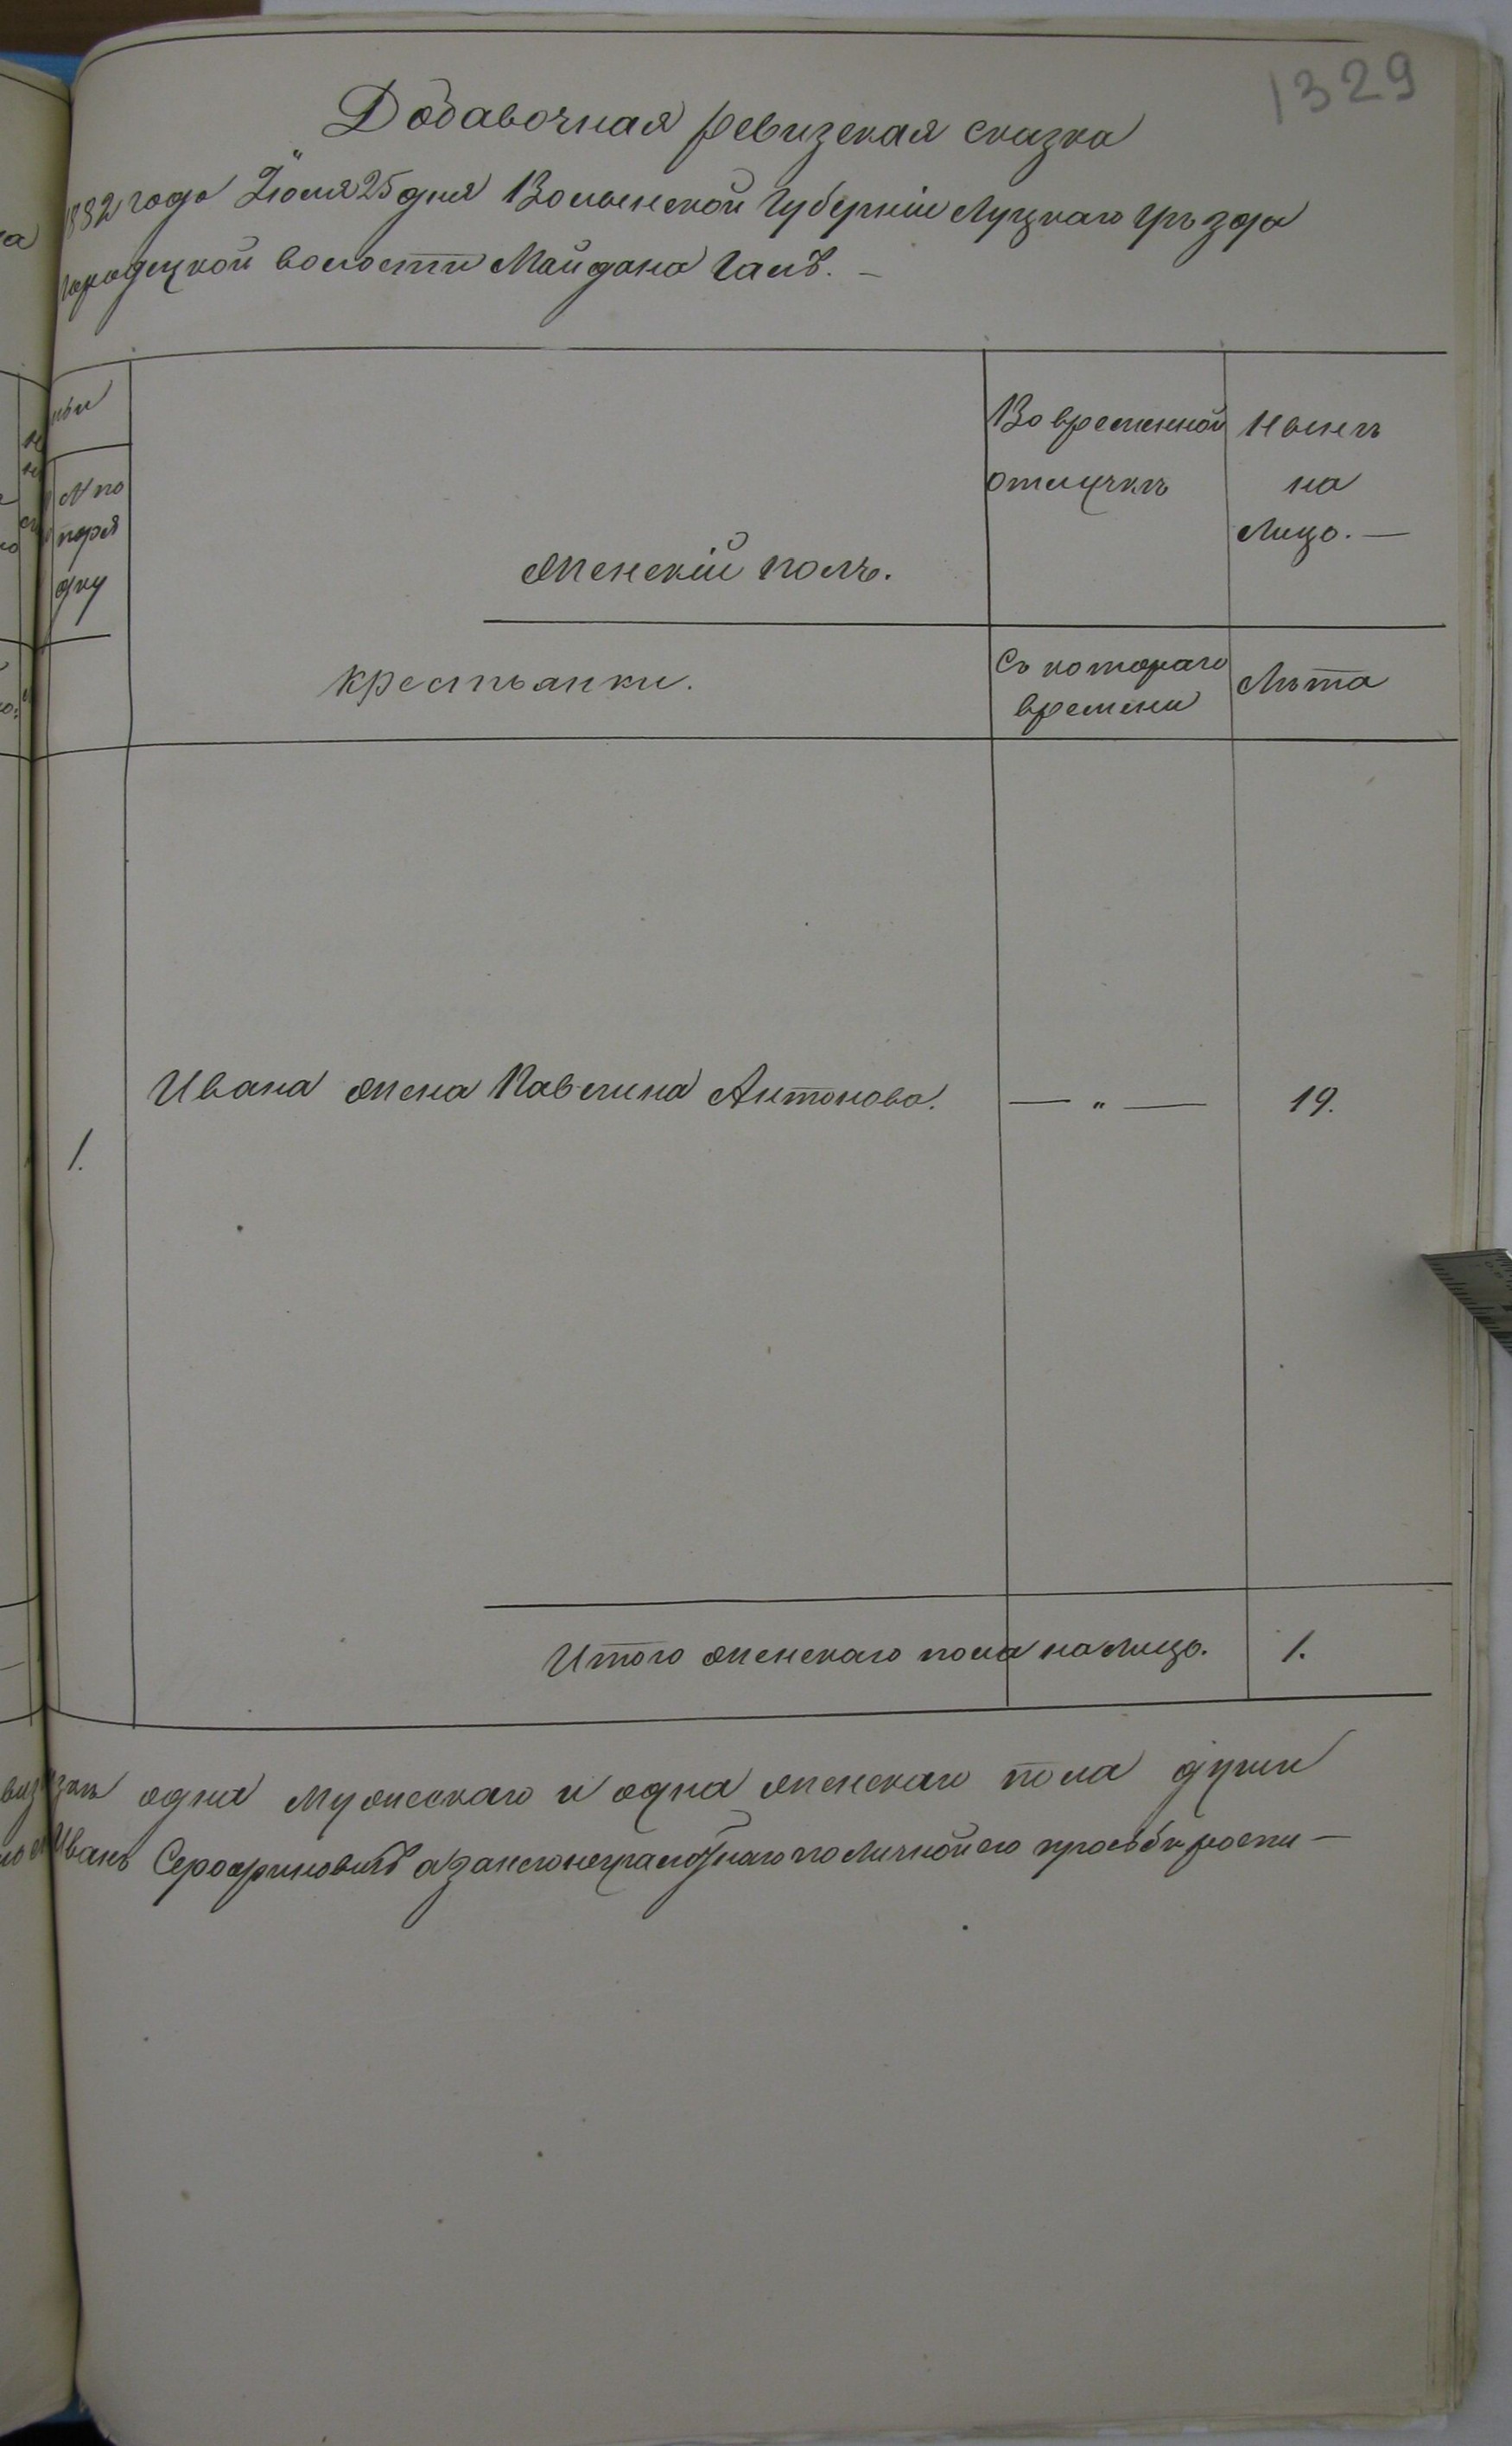 1329
Добавочная ревизская сказка
1882 года Іюля 25 дня Волынской Губерніи Луцкаго Уѣзда
Городецкой волости Майдана Галы. –
№ по
поря
дку
Женскій полъ.
Во временной
отлучкѣ
Нынѣ
на
Лицо. —
Крестьянки.
Съ котораго
времени
Лѣта
1.
Ивана жена Павлина Антонова.
— „ —
19.
Итого женскаго пола на лицо.
1.
одна Мужескаго и одна женскаго пола души
Иванъ а за него неграмотнаго по личной его просьбѣ роспи –